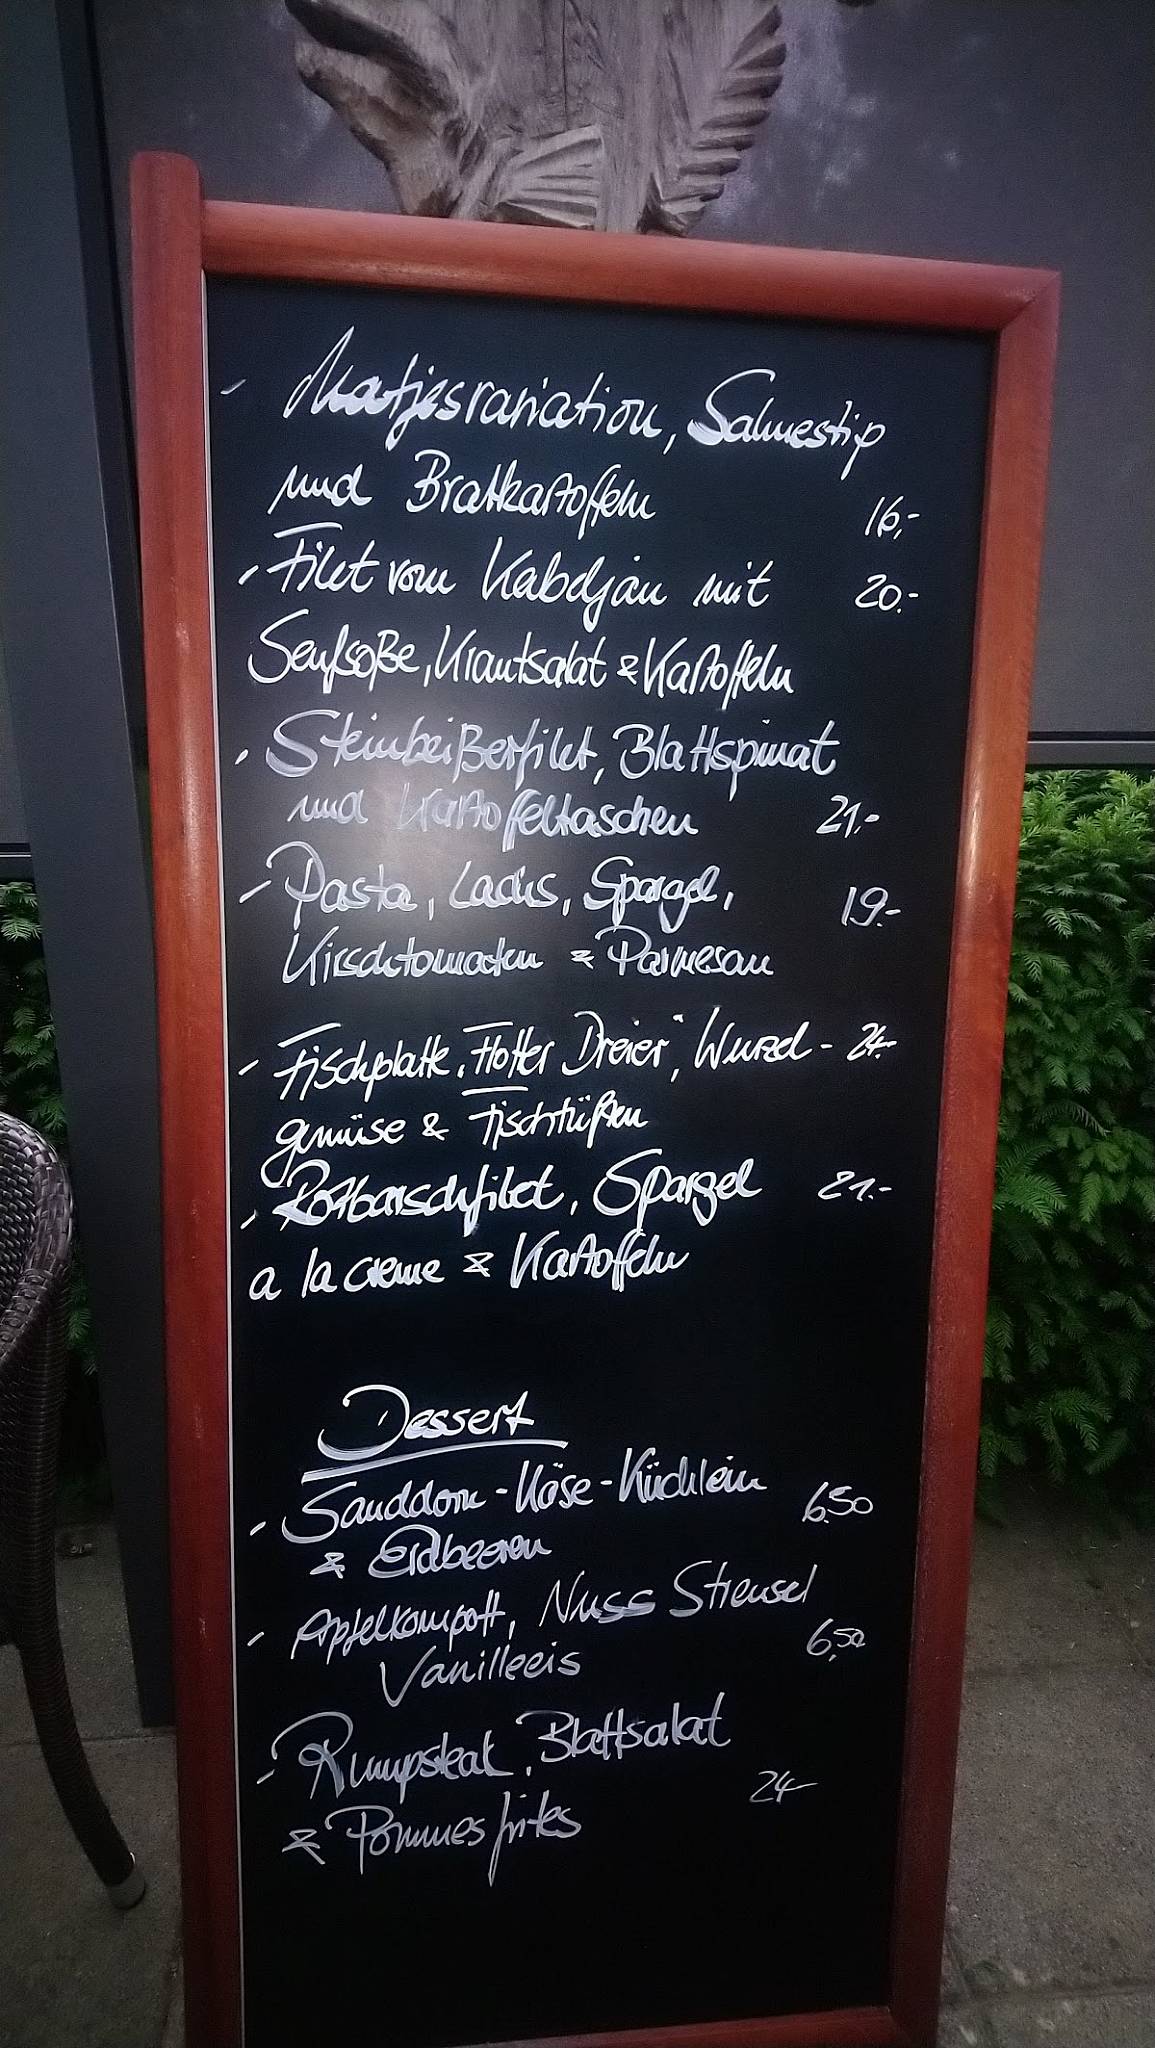 - Matjesvariation, Sahnestip
und Bratkartoffeln 16,-
- Filet vom Kabeljau mit 20.-
Senfsoße, Krautsalat & Kartoffeln
- Steinbeißerfilet, Blattspinat
und Kartoffeltaschen 21.-
- Pasta, Lachs, Spargel, 19.-
Kirschtomaten & Parmesan
- Fischplatte, "Flotter Dreier", Wurzel- 24.-
gemüse & Fischtüften
- Rotbarschfilet, Spargel 21.-
a la creme & Kartoffeln
Dessert
- Sanddorn-Käse-Küchlein 6.50
& Erdbeeren
- Apfelkompott, Nuss Streusel
Vanilleeis 6,50
- Rumpsteak, Blattsalat
& Pommes frites 24-